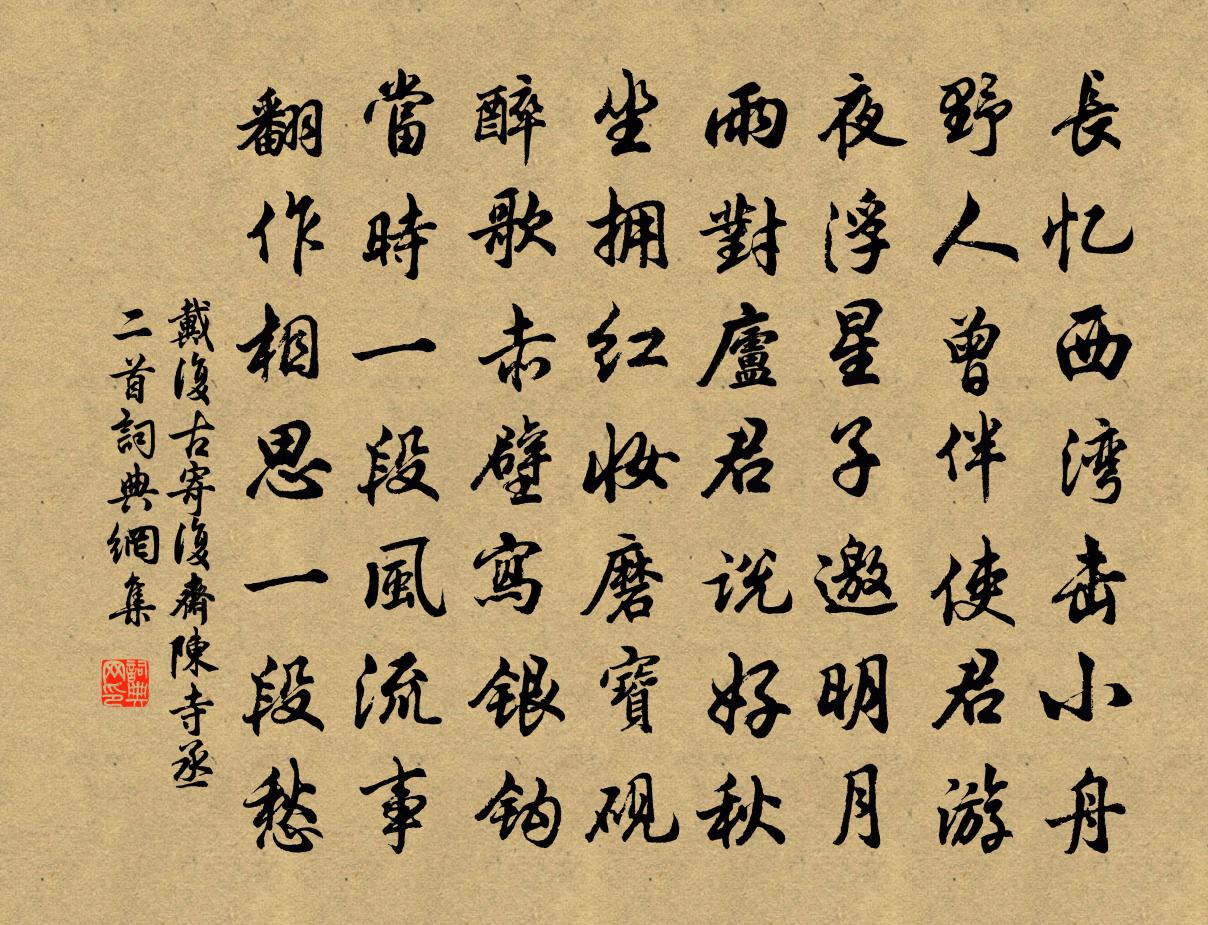 長忆西湾击小舟
野人曾伴使君游
夜浮星子邀明月
雨對廬君説好秋
坐拥红妆磨寶硯
醉歌赤壁寫銀鈎
當時一段風流事
翻作相思一段愁
戴復古寄復齋陳寺丞
二首詞典網集
詞典
网印